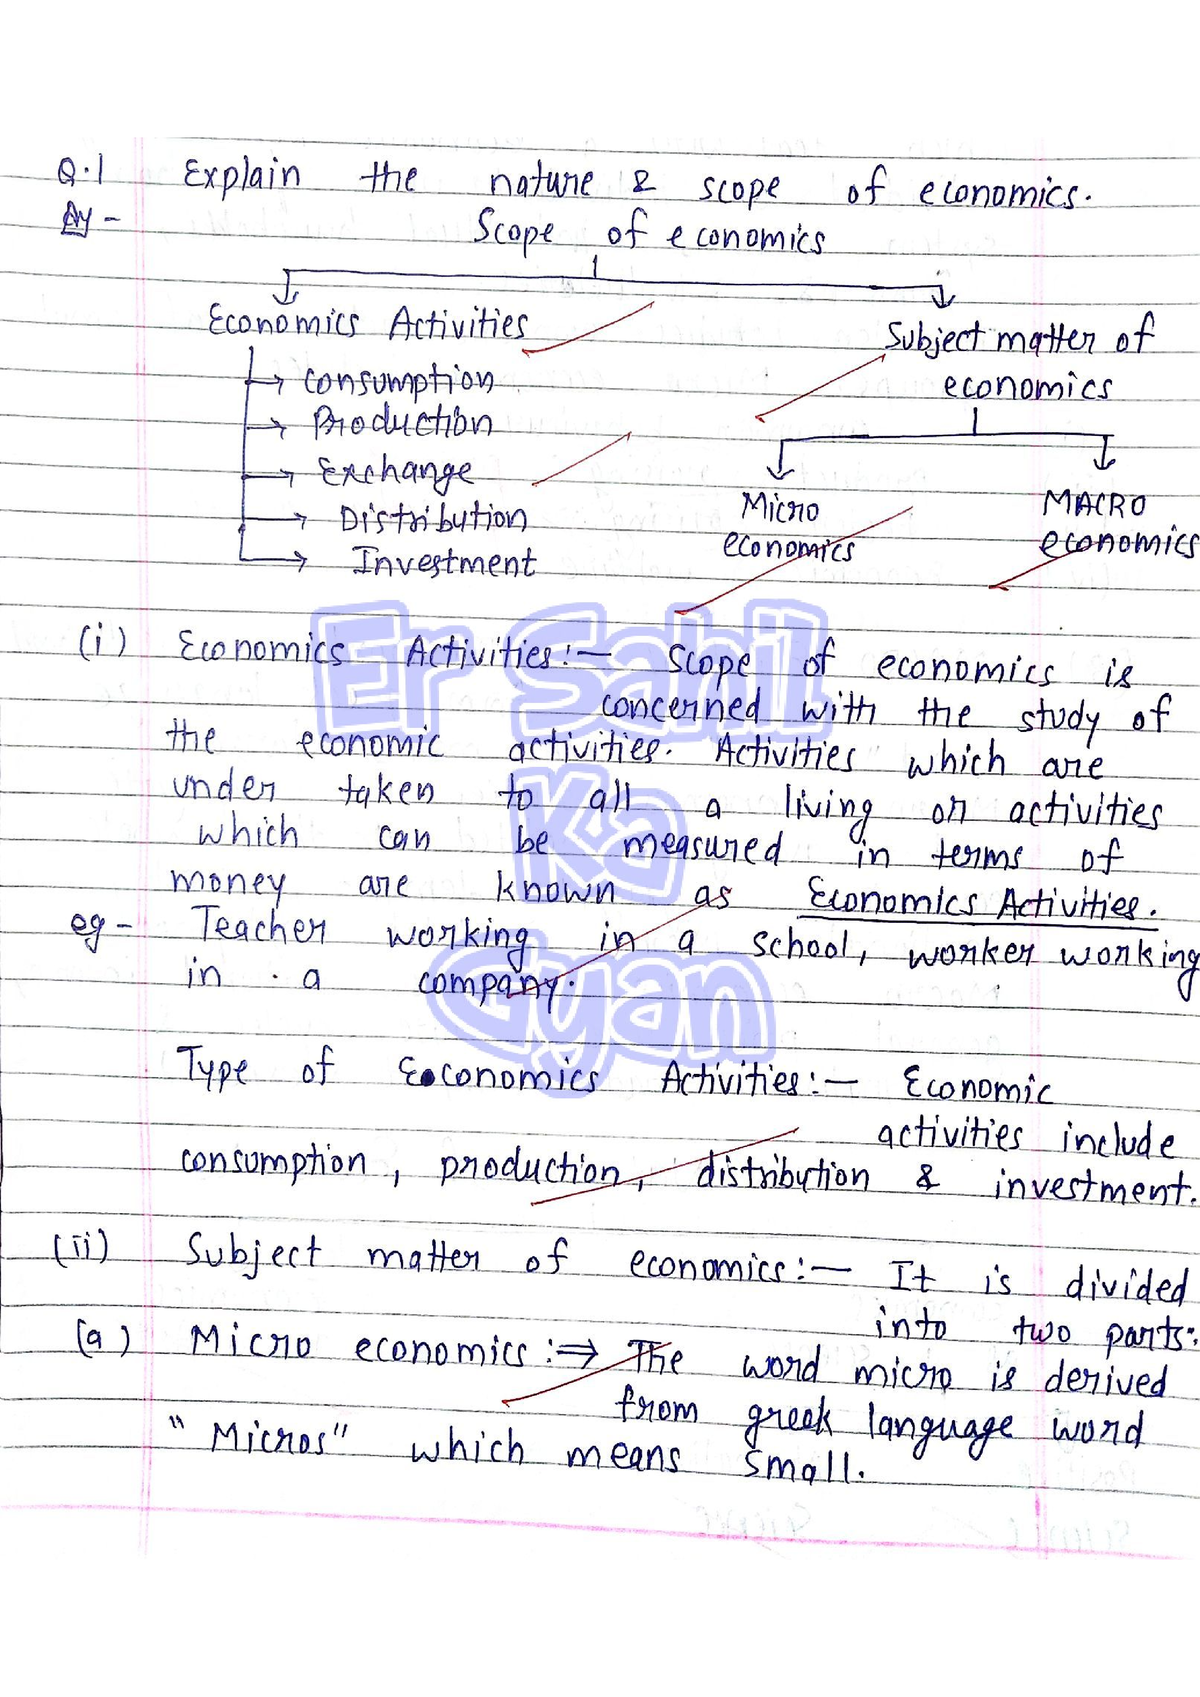 Q.1 Explain the nature & scope of economics.
Scope of economics
Economics Activities
Subject matter of
economics
consumption
Production
Exchange
Distribution
Investment
Micro
economics
MACRO
economics
(i) Economics Activities:- Scope of economics is
concerned with the study of
the economic activities. Activities which are
under taken to all a living or activities
which can be measured in terms of
money are known as Economics Activities.
eg- Teacher working in a school, worker working
in a company.
Type of Economics Activities:- Economic
activities include
consumption, production, distribution & investment.
(ii) Subject matter of economics:- It is divided
into two parts:
(a) Micro economics:⇒ The word micro is derived
from greek language word
"Micros" which means small.
Er Sahil
Ka
Gyan